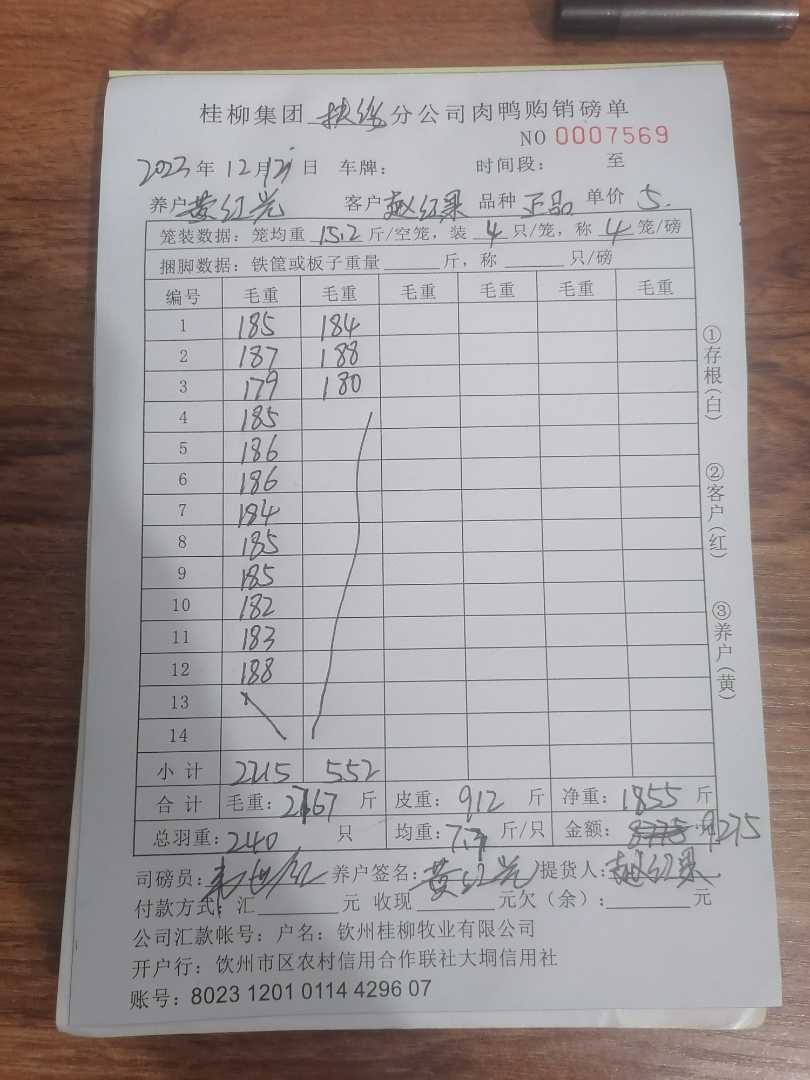 桂柳集团 分公司肉鸭购销磅单
NO 0007569
2023年12月12日 车牌： 时间段： 至
养户黄红光 客户赵红果 品种 正品 单价 5.
笼装数据：笼均重 15.2 斤/空笼，装 4 只/笼，称 4 笼/磅
捆脚数据：铁筐或板子重量 斤，称 只/磅
编号 毛重 毛重 毛重 毛重 毛重 毛重
1 185 184
2 187 188
3 179 180
4 185
5 186
6 186
7 184
8 185
9 185
10 182
11 183
12 188
13
14
小计 2215 552
合计 毛重：2767 斤 皮重：912 斤 净重：1855 斤
总羽重：240 只 均重：7.7 斤/只 金额：9275
司磅员： 养户签名：黄红光 提货人：赵红果
付款方式：汇 元 收现 元欠（余）： 元
公司汇款帐号：户名：钦州桂柳牧业有限公司
开户行：饮州市区农村信用合作联社大垌信用社
账号：8023 1201 0114 4296 07
①存根（白）
②客户（红）
③养户（黄）